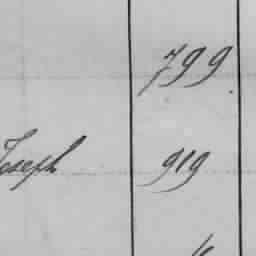 799
Joseph 919